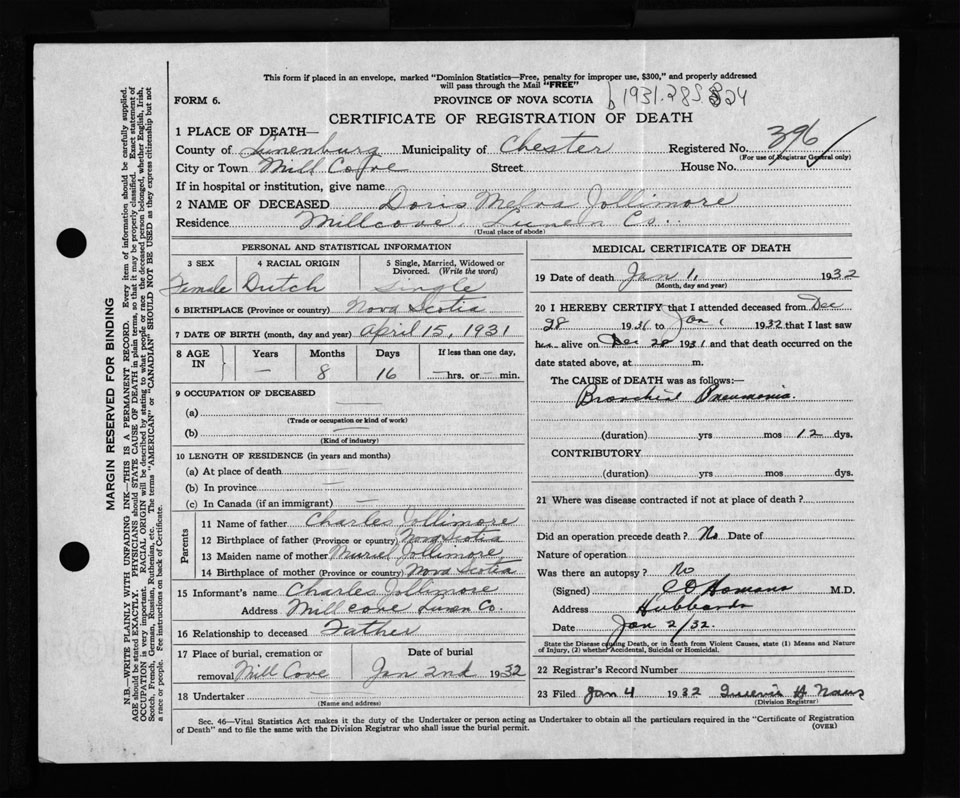 This form if placed in an envelope, marked "Dominion Statistics—Free, penalty for improper use, $300," and properly addressed
will pass through the Mail "FREE"
FORM 6.
PROVINCE OF NOVA SCOTIA
CERTIFICATE OF REGISTRATION OF DEATH
1 PLACE OF DEATH—
County of Lunenburg Municipality of Chester Registered No. 396
(For use of Registrar General only)
City or Town Mill Cove Street House No.
If in hospital or institution, give name
2 NAME OF DECEASED Doris Melva Jollimore
Residence Millcove, Lunen Co.
(Usual place of abode)
PERSONAL AND STATISTICAL INFORMATION
3 SEX 4 RACIAL ORIGIN 5 Single, Married, Widowed or Divorced. (Write the word)
Female Dutch Single
6 BIRTHPLACE (Province or country) Nova Scotia
7 DATE OF BIRTH (month, day and year) April 15, 1931
8 AGE IN Years Months Days If less than one day,
— 8 16 — hrs. or — min.
9 OCCUPATION OF DECEASED —
(a)
(Trade or occupation or kind of work)
(b)
(Kind of industry)
10 LENGTH OF RESIDENCE (in years and months)
(a) At place of death —
(b) In province —
(c) In Canada (if an immigrant) —
Parents
11 Name of father Charles Jollimore
12 Birthplace of father (Province or country) Nova Scotia
13 Maiden name of mother Muriel Jollimore
14 Birthplace of mother (Province or country) Nova Scotia
15 Informant's name Charles Jollimore
Address Mill cove Lunen Co.
16 Relationship to deceased Father
17 Place of burial, cremation or removal Mill Cove Date of burial Jan 2nd 1932
18 Undertaker —
(Name and address)
MEDICAL CERTIFICATE OF DEATH
19 Date of death Jan 1, 1932
(Month, day and year)
20 I HEREBY CERTIFY that I attended deceased from Dec
28 1931 to Jan 1 1932 that I last saw
her alive on Dec 28 1931 and that death occurred on the
date stated above, at m.
The CAUSE of DEATH was as follows:—
Bronchial Pneumonia.
(duration) yrs mos 12 dys.
CONTRIBUTORY
(duration) yrs mos dys.
21 Where was disease contracted if not at place of death?
Did an operation precede death? No Date of
Nature of operation
Was there an autopsy? No
(Signed) M.D.
Address Hubbards
Date Jan 2/32.
State the Disease causing Death, or in Death from Violent Causes, state (1) Means and Nature
of Injury, (2) whether Accidental, Suicidal or Homicidal.
22 Registrar's Record Number
23 Filed Jan 4 1932
(Division Registrar)
Sec. 46—Vital Statistics Act makes it the duty of the Undertaker or person acting as Undertaker to obtain all the particulars required in the "Certificate of Registration
of Death" and to file the same with the Division Registrar who shall issue the burial permit.
(OVER)
MARGIN RESERVED FOR BINDING
N.B.—WRITE PLAINLY WITH UNFADING INK—THIS IS A PERMANENT RECORD. Every item of information should be carefully supplied.
AGE should be stated EXACTLY. PHYSICIANS should STATE CAUSE OF DEATH in plain terms, so that it may be properly classified. Exact statement of
OCCUPATION is very important. RACIAL ORIGIN will be described by stating to what people or race the deceased person belonged, whether English, Irish,
Scotch, French, German, Russian, Ruthenian, etc. The terms "AMERICAN" or "CANADIAN" SHOULD NOT BE USED as they express citizenship but not
a race or people. Fee instructions on back of Certificate.